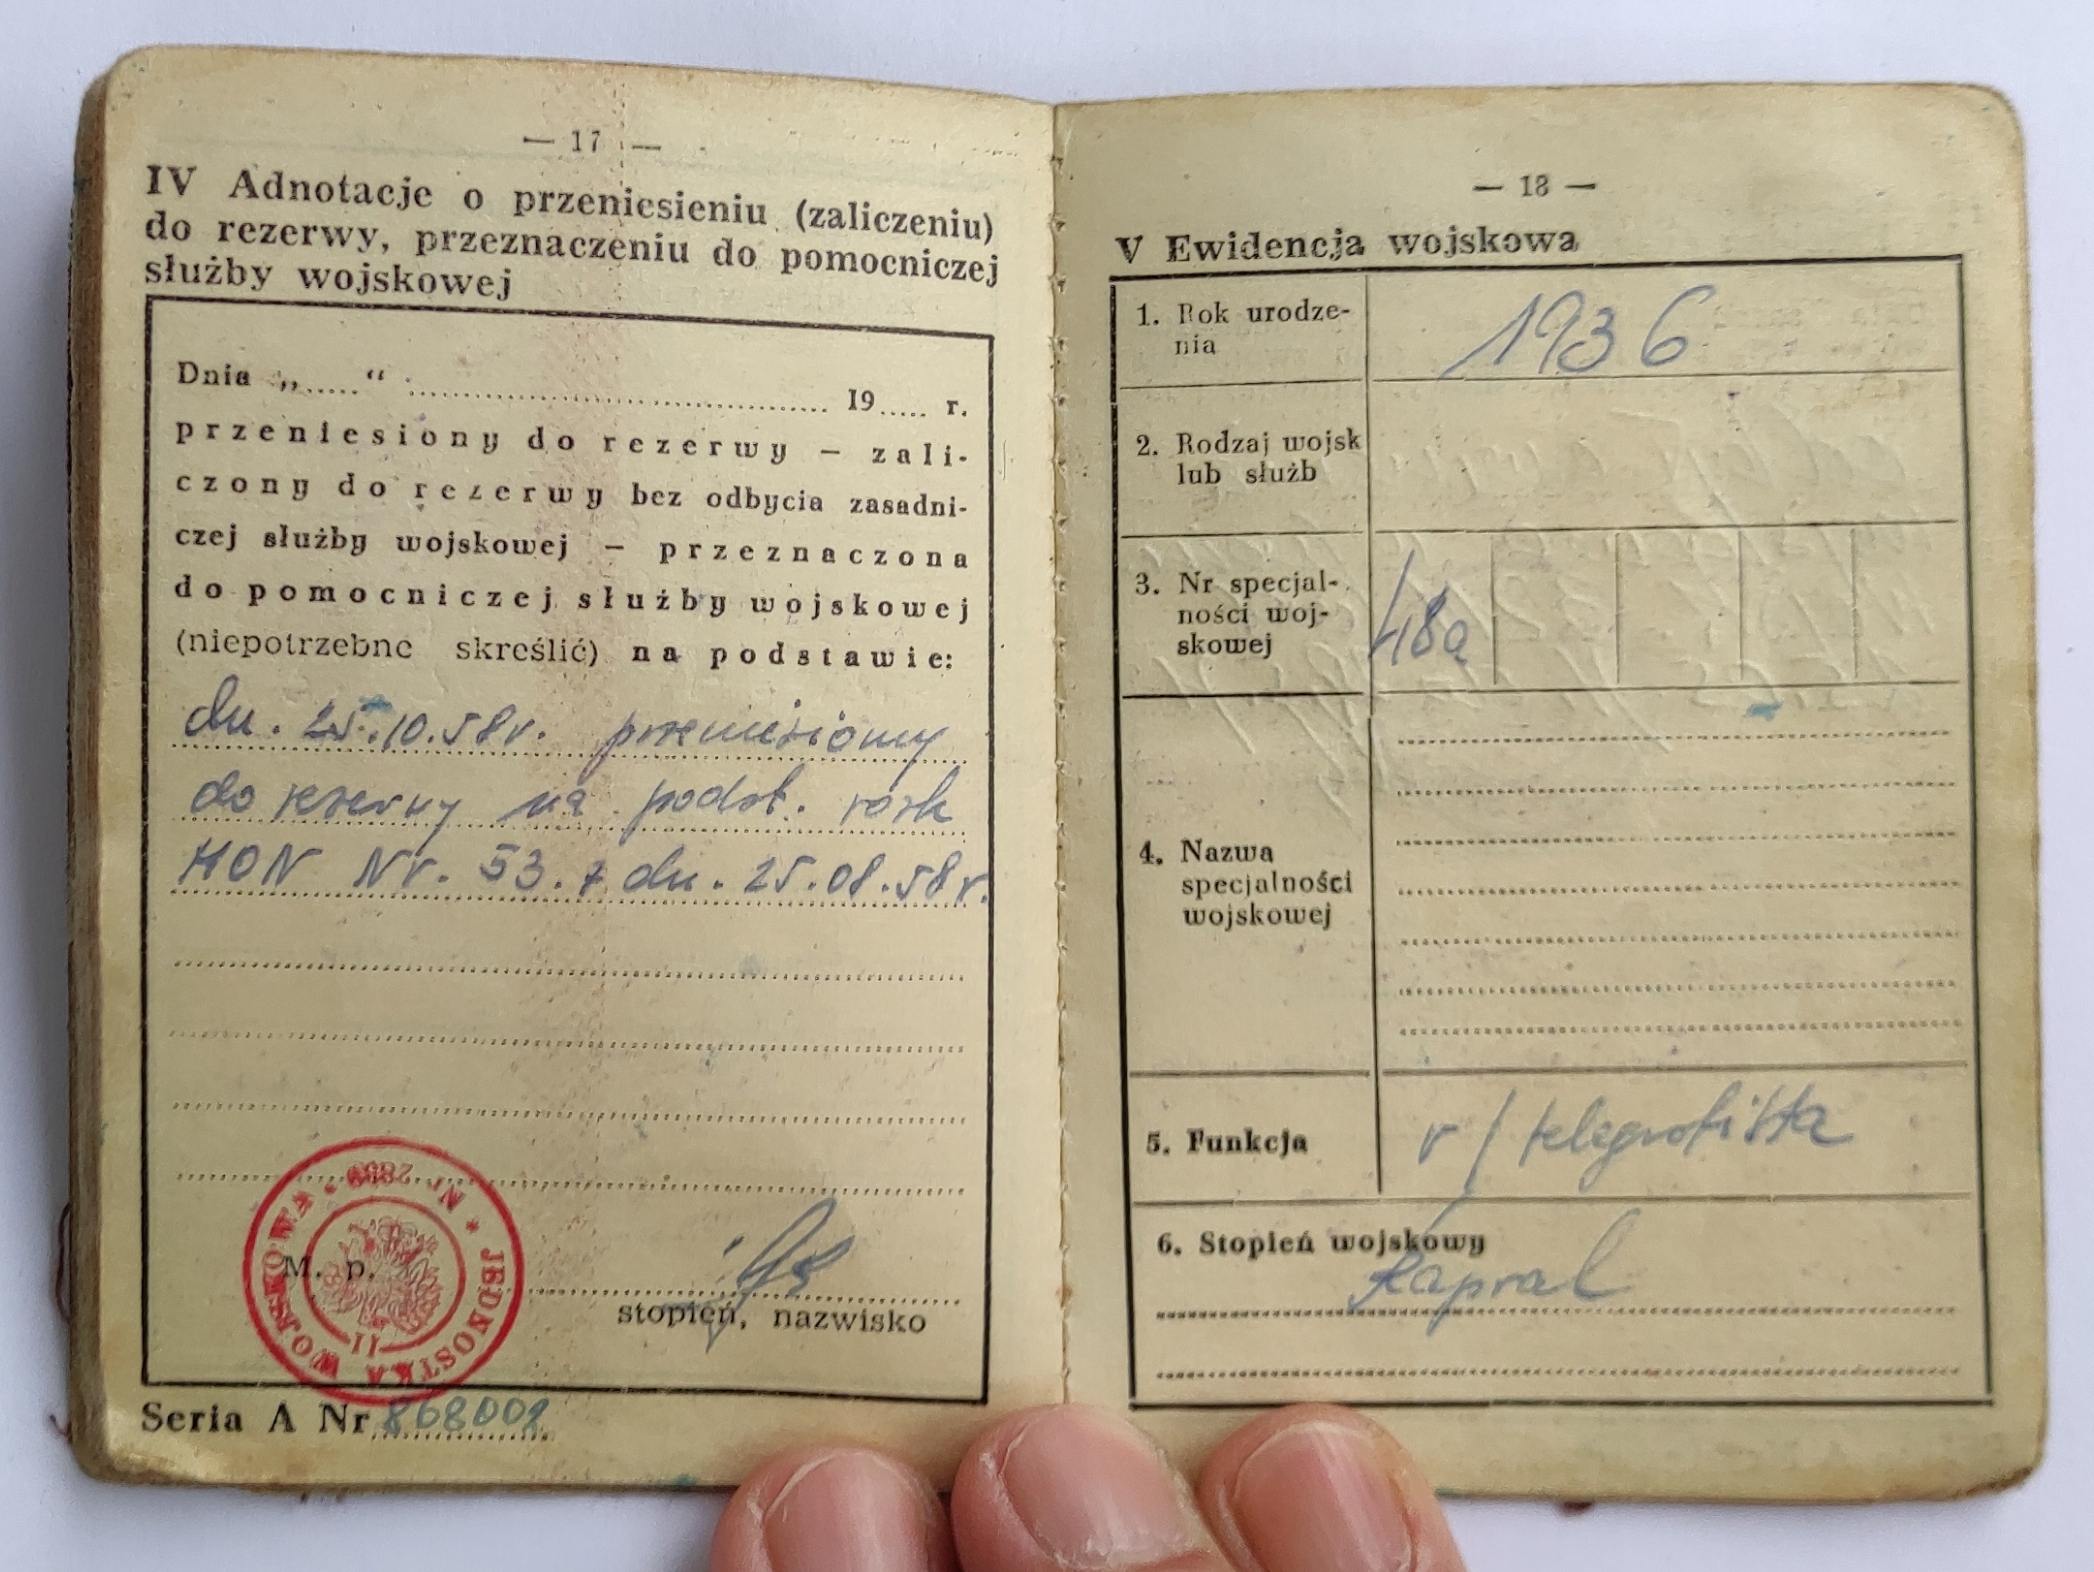 — 17 —
IV Adnotacje o przeniesieniu (zaliczeniu)
do rezerwy, przeznaczeniu do pomocniczej
służby wojskowej
Dnia „......“ ........................................ 19..... r.
przeniesiony do rezerwy — zali-
czony do rezerwy bez odbycia zasadni-
czej służby wojskowej — przeznaczona
do pomocniczej służby wojskowej
(niepotrzebne skreślić) na podstawie:
dn. 25.10.58r. przeniesiony
do rezerwy na podst. rozk
MON Nr. 53. z dn. 25.08.58r.
JEDNOSTKA WOJSKOWA * Nr 2859 *
11
M. p.
stopień, nazwisko
Seria A Nr 868002
— 18 —
V Ewidencja wojskowa
1. Rok urodze-
nia
1936
2. Rodzaj wojsk
lub służb
3. Nr specjal-
ności woj-
skowej
48a
4. Nazwa
specjalności
wojskowej
5. Funkcja
r/telegrafista
6. Stopień wojskowy
Kapral